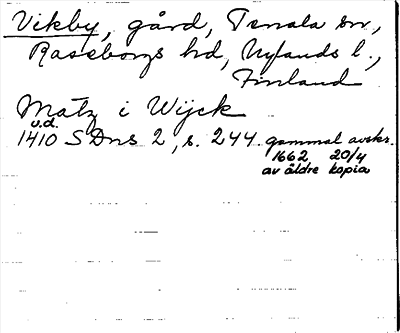 Vikby, gård, Tenala sn,
Raseborgs hd, Nylands l.,
Finland
Matz i Wijck
u.d.
1410 SDns 2, s. 244. gammal avskr.
1662 20/4
av äldre kopia